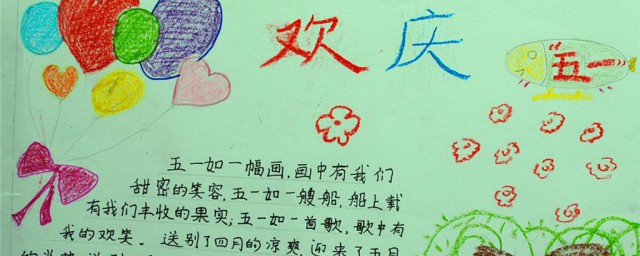 欢庆
“五一”
五一如一幅画，画中有我们
甜密的笑容，五一如一艘船，船上载
有我们丰收的果实；五一如一首歌，歌中有
我的欢笑。送别了四月的凉爽，迎来了五月